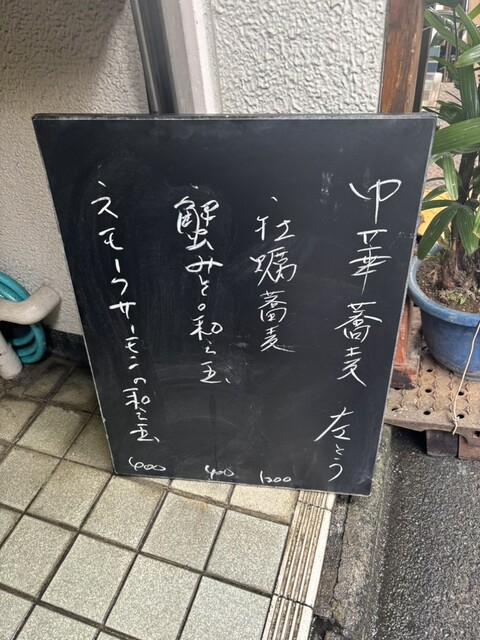 中華蕎麦 左とう
・牡蠣蕎麦 1200
・蟹みその和え玉 400
・スモークサーモンの和え玉 400